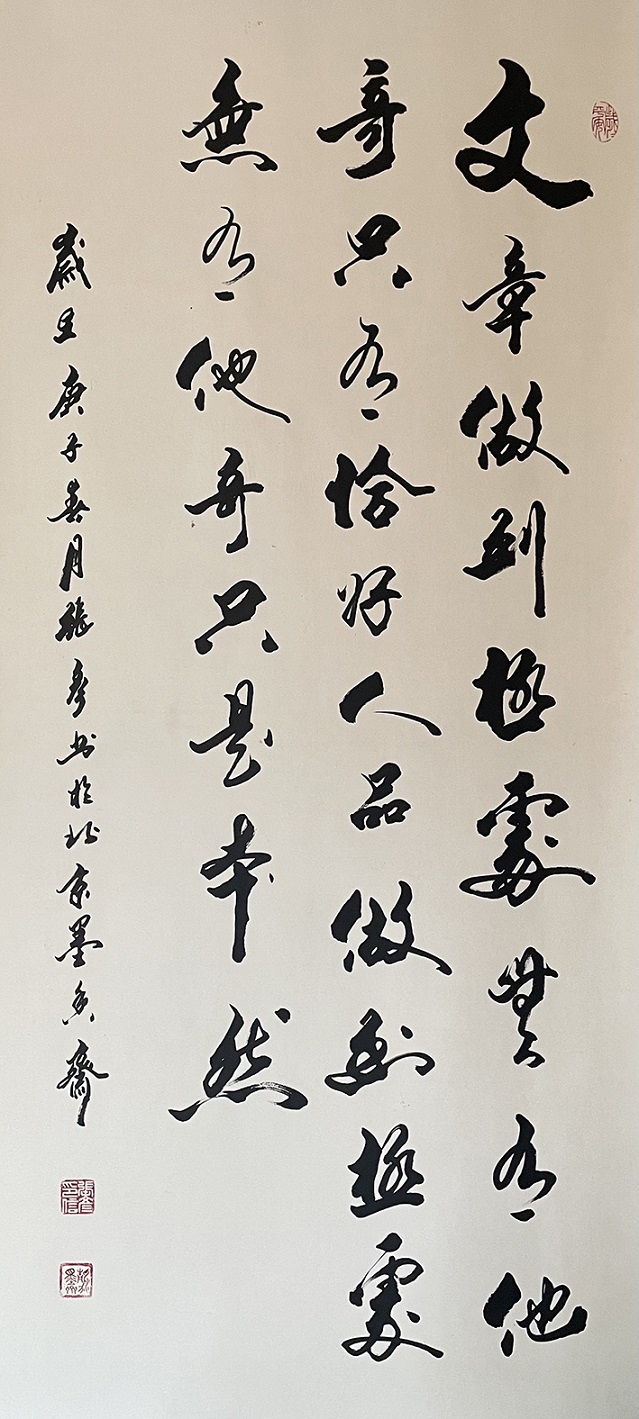 文章做到極處無有他
奇只有恰好人品做到極處
無有他奇只是本然
歲在庚子春月張彦书於北京墨香齋